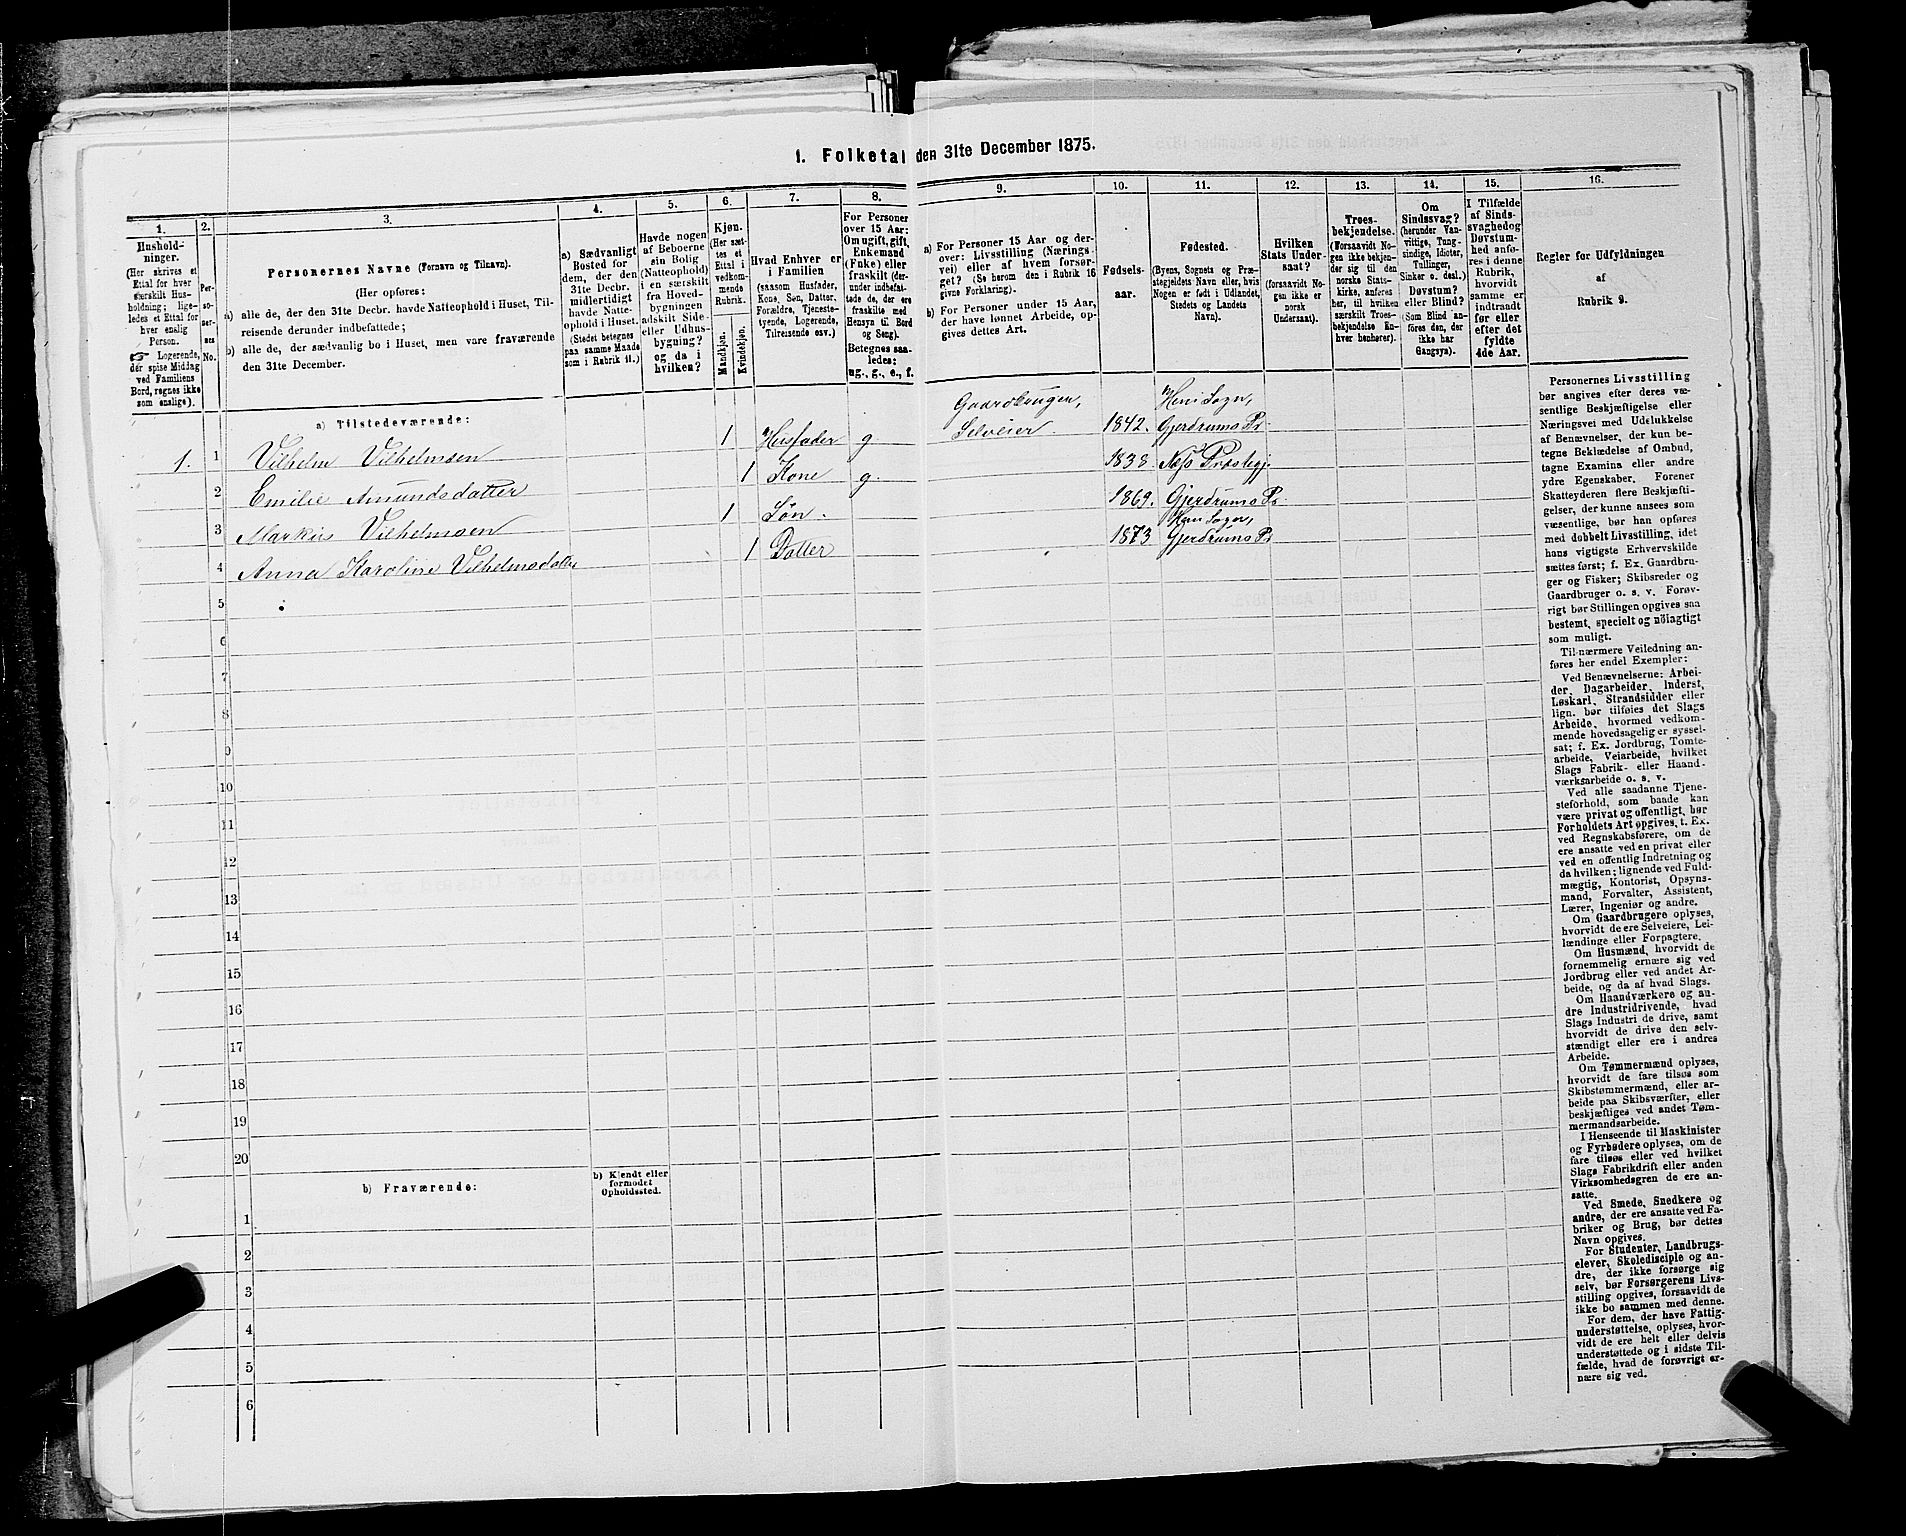 1. Folketal den 31te December 1875.
1.
Hushold-
ninger.
(Her skrives et
Ettal for hver
særskilt Hus-
holdning; lige-
ledes et Ettal for
hver enslig
Person.
Logerende,
der spise Middag
ved Familiens
Bord, regnes ikke
som enslige).
2.
Per-
so-
ner-
nes
No.
3.
Personernes Navne (Fornavn og Tilnavn).
(Her opføres:
a) alle de, der den 31te Decbr. havde Natteophold i Huset, Til-
reisende derunder indbefattede;
b) alle de, der sædvanlig bo i Huset, men vare fraværende
den 31te December.
4.
a) Sædvanligt
Bosted for
dem, der den
31te Decbr.
midlertidigt
havde Natte-
ophold i Huset.
(Stedet betegnes
paa samme Maade
som i Rubrik 11.)
5.
Havde nogen
af Beboerne
sin Bolig
(Natteophold)
i en særskilt
fra Hoved-
bygningen
adskilt Side-
eller Udhus-
bygning?
og da i
hvilken?
6.
Kjøn.
(Her sæt-
tes et
Ettal i
vedkom-
mende
Rubrik.
Mandkjøn.
Kvindekjøn.
7.
Hvad Enhver er
i Familien
(saasom Husfader,
Kone, Søn, Datter,
Forældre, Tjeneste-
tyende, Logerende,
Tilreisende osv.)
8.
For Personer
over 15 Aar:
Om ugift, gift,
Enkemand
(Enke) eller
fraskilt (der-
under indbefat-
tede de, der ere
fraskilte med
Hensyn til Bord
og Seng).
Betegnes saa-
ledes:
ug., g., e., f.
9.
a) For Personer 15 Aar og der-
over: Livsstilling (Nærings-
vei) eller af hvem forsør-
get? (Se herom den i Rubrik 16
givne Forklaring).
b) For Personer under 15 Aar,
der have lønnet Arbeide, op-
gives dettes Art.
10.
Fødsels-
aar.
11.
Fødested.
(Byens, Sognets og Præ-
stegjeldets Navn eller, hvis
Nogen er født i Udlandet,
Stedets og Landets
Navn).
12.
Hvilken
Stats Under-
saat?
(forsaavidt No-
gen ikke er
norsk
Undersaat).
13.
Troes-
bekjendelse.
(Forsaavidt No-
gen ikke bekjen-
der sig til den
norske Stats-
kirke, anføres
her, til hvilken
særskilt Troes-
bekjendelse En-
hver henhører).
14.
Om
Sindssvag?
(herunder Van-
vittige, Tung-
sindige, Idioter,
Tullinger,
Sinker o. desl.)
Døvstum?
eller Blind?
(Som Blind an-
føres den, der
ikke har
Gangsyn).
15.
I Tilfælde
af Sinds-
svaghed og
Døvstum-
hed anfø-
res i denne
Rubrik,
hvorvidt
samme er
indtraadt
før eller
efter det
fyldte
4de Aar.
16.
Regler for Udfyldningen
af
Rubrik 9.
a) Tilstedeværende:
1. 1 Vilhelm Vilhelmsen 1 Husfader g Gaardbruger, Selveier 1842. Heni Sogn, Gjerdrums Pr.
2 Emilie Amundsdatter 1 Kone g. 1838 Næs Præstegj.
3 Markus Vilhelmsen 1 Søn. 1869. Gjerdrums Pr.
4 Anna Karoline Vilhelmsdatter 1 Datter 1873 Heni Sogn, Gjerdrums Pr
5
6
7
8
9
10
11
12
13
14
15
16
17
18
19
20
b) Fraværende:
b) Kjendt eller
formodet
Opholdssted.
1
2
3
4
5
6
Personernes Livsstilling
bør angives efter deres væ-
sentlige Beskjæftigelse eller
Næringsvei med Udelukkelse
af Benævnelser, der kun be-
tegne Beklædelse af Ombud,
tagne Examina eller andre
ydre Egenskaber. Forener
Skatteyderen flere Beskjæfti-
gelser, der kunne ansees som
væsentlige, bør han opføres
med dobbelt Livsstilling, idet
hans vigtigste Erhvervskilde
sættes først; f. Ex. Gaardbru-
ger og Fisker; Skibsreder og
Gaardbruger o. s. v. Forøv-
rigt bør Stillingen opgives saa
bestemt, specielt og nöiagtigt
som muligt.
Til nærmere Veiledning an-
føres her endel Exempler:
Ved Benævnelserne: Arbei-
der, Dagarbeider, Inderst,
Løskarl, Strandsidder eller
lign. bør tilføies det Slags
Arbeide, hvormed vedkom-
mende hovedsagelig er syssel-
sat; f. Ex. Jordbrug, Tomte-
arbeide, Veiarbeide, hvilket
Slags Fabrik- eller Haand-
værksarbeide o. s. v.
Ved alle saadanne Tjene-
steforhold, som baade kan
være privat og offentligt, bør
Forholdets Art opgives, t. Ex.
ved Regnskabsførere, om de
ere ansatte ved en privat eller
ved en offentlig Indretning og
da hvilken; lignende ved Fuld-
mægtig, Kontorist, Opsyns-
mand, Forvalter, Assistent,
Lærer, Ingeniør og andre.
Om Gaardbrugere oplyses,
hvorvidt de ere Selveiere, Lei-
lændinge eller Forpagtere.
Om Husmænd, hvorvidt de
fornemmelig ernære sig ved
Jordbrug eller ved andet Ar-
beide, og da af hvad Slags.
Om Haandværkere og an-
dre Industridrivende, hvad
Slags Industri de drive, samt
hvorvidt de drive den selv-
stændigt eller ere i andres
Arbeide.
Om Tømmermænd oplyses,
hvorvidt de fare tilsøs som
Skibstømmermænd, eller ar-
beide paa Skibsværfter, eller
beskjæftiges ved andet Tøm-
mermandsarbeide.
I Henseende til Maskinister
og Fyrbødere oplyses, om de
fare tilsøs eller ved hvilket
Slags Fabrikdrift eller anden
Virksomhedsgren de ere an-
satte.
Ved Smede, Snedkere og
andre, der ere ansatte ved Fa-
briker og Brug, bør dettes
Navn opgives.
For Studenter, Landbrugs-
elever, Skoledisciple og an-
dre, der ikke forsørge sig
selv, bør Forsørgerens Livs-
stilling opgives, forsaavidt de
ikke bo sammen med denne.
For dem, der have Fattig-
understøttelse, oplyses, hvor-
vidt de ere helt eller delvis
understøttede og i sidste Til-
fælde, hvad de forøvrigt er-
nære sig ved.